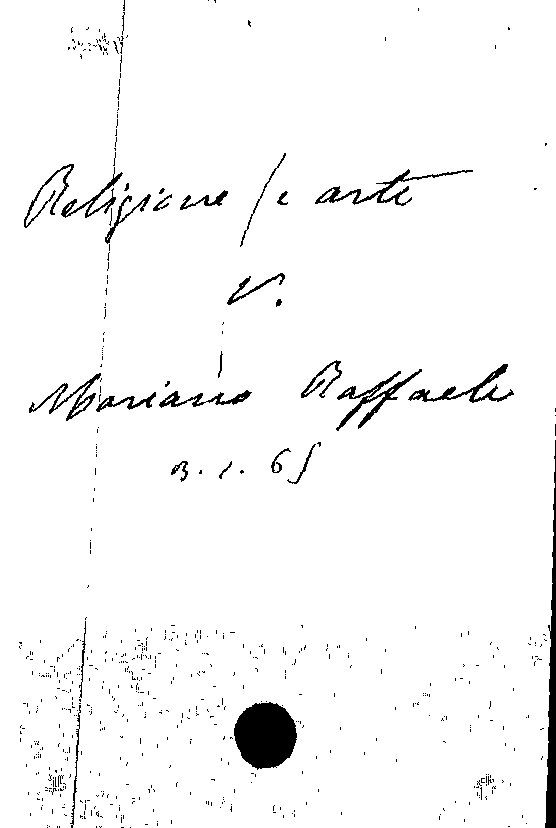 Religione / e arte
V.
Mariano Raffaele
3. 1. 65